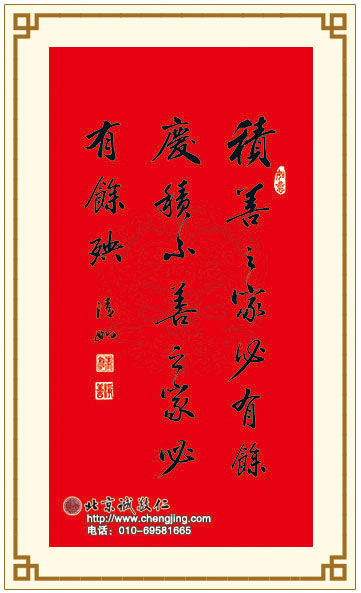 積善之家必有餘
慶積不善之家必
有餘殃
清如
北京诚敬仁
http://www.chengjing.com
电话：010-69581665